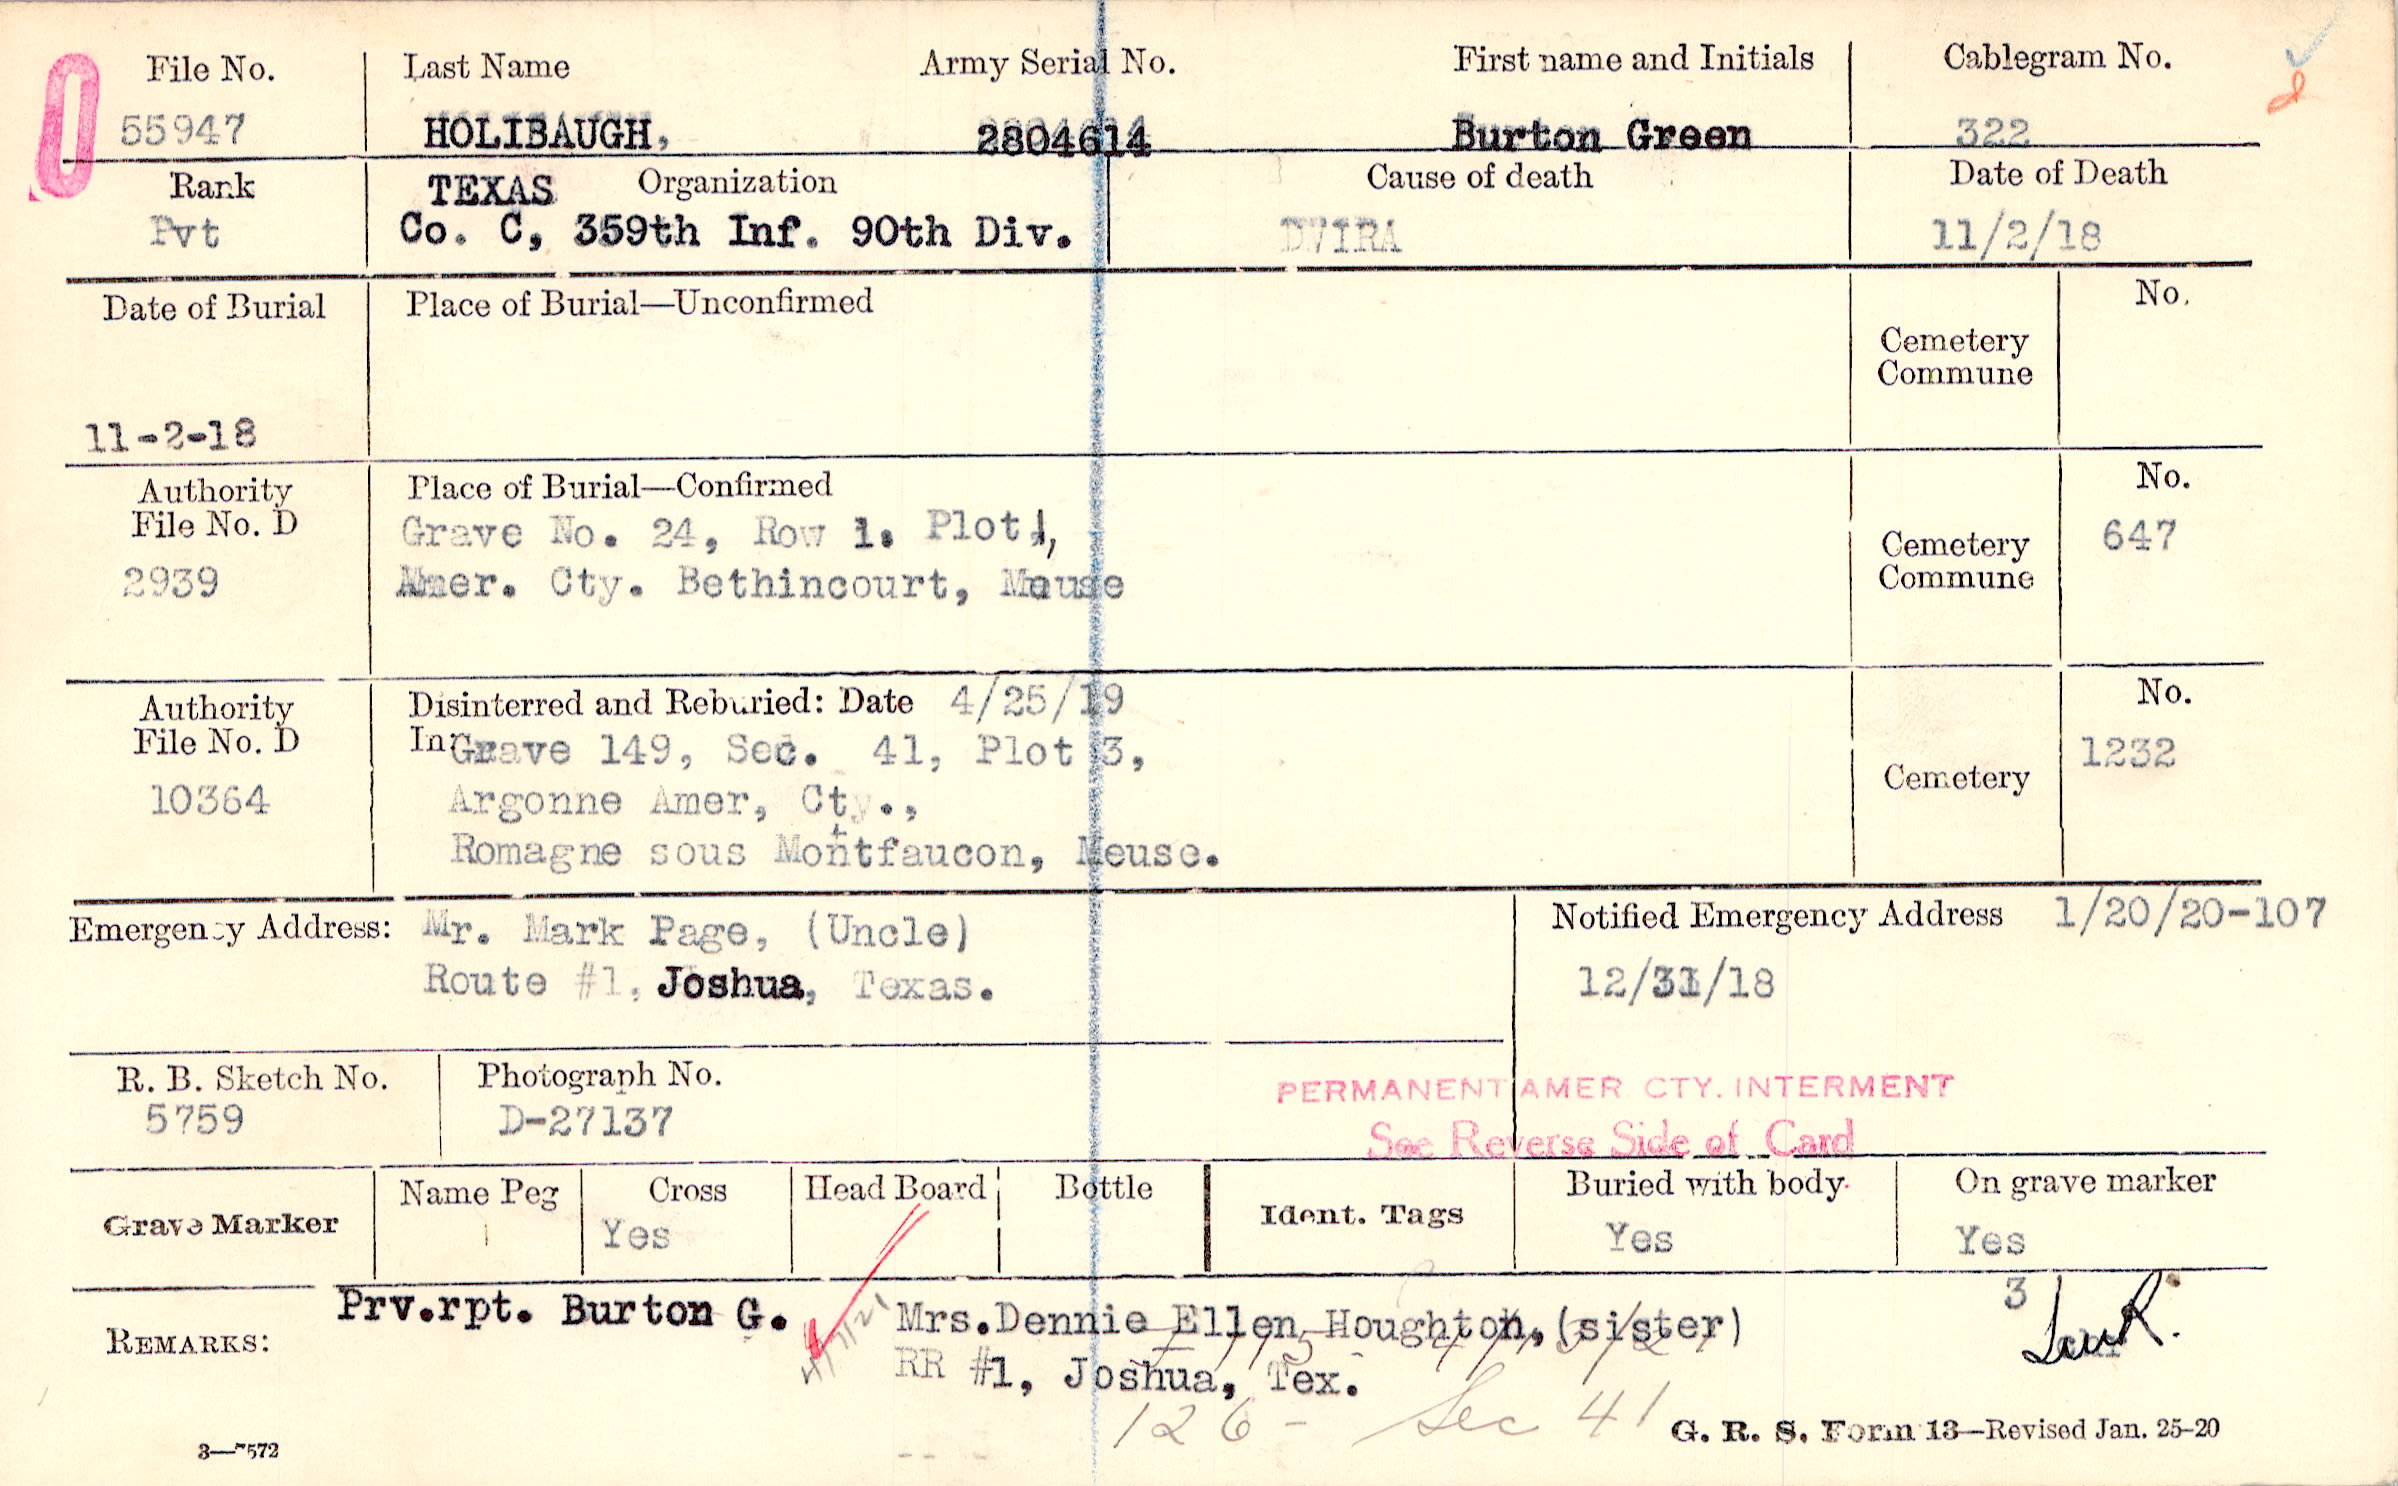 File No. Last Name Army Serial No. First name and Initials Cablegram No.
55947 HOLIBAUGH, 2804614 Burton Green 322
Rank TEXAS Organization Cause of death Date of Death
Pvt Co. C, 359th Inf. 90th Div. DWIRA 11/2/18
Date of Burial Place of Burial—Unconfirmed No.
Cemetery
Commune
11-2-18
Authority Place of Burial—Confirmed No.
File No. D Grave No. 24, Row 1. Plot 1, Cemetery 647
2939 Amer. Cty. Bethincourt, Meuse Commune
Authority Disinterred and Reburied: Date 4/25/19 No.
File No. D In: Grave 149, Sec. 41, Plot 3, Cemetery 1232
10364 Argonne Amer, Cty.,
Romagne sous Montfaucon, Meuse.
Emergency Address: Mr. Mark Page, (Uncle) Notified Emergency Address 1/20/20-107
Route #1, Joshua, Texas. 12/31/18
R. B. Sketch No. Photograph No. PERMANENT AMER CTY. INTERMENT
5759 D-27137 See Reverse Side of Card
Grave Marker Name Peg Cross Head Board Bottle Ident. Tags Buried with body On grave marker
Yes Yes Yes
3
REMARKS: Prv.rpt. Burton G. Mrs.Dennie Ellen Houghton,(sister)
RR #1, Joshua, Tex.
126 - Sec 41
3—7572 G. R. S. Form 13—Revised Jan. 25-20